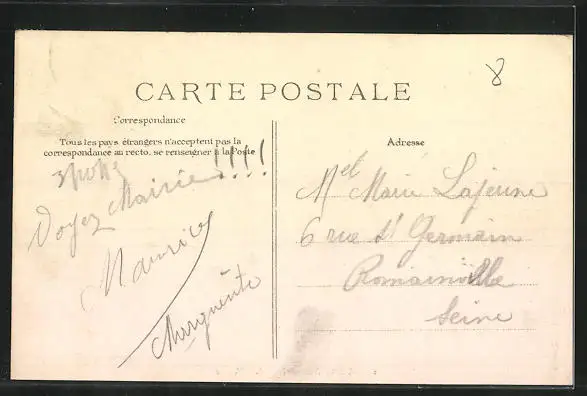 8
CARTE POSTALE
Correspondance
Tous les pays étrangers n'acceptent pas la
correspondance au recto, se renseigner à la Poste
Voyez Mairie !!!!
Maurice
Marguerite
Adresse
Melle Marie Lajeune
6 rue St Germain
Romainville
Seine